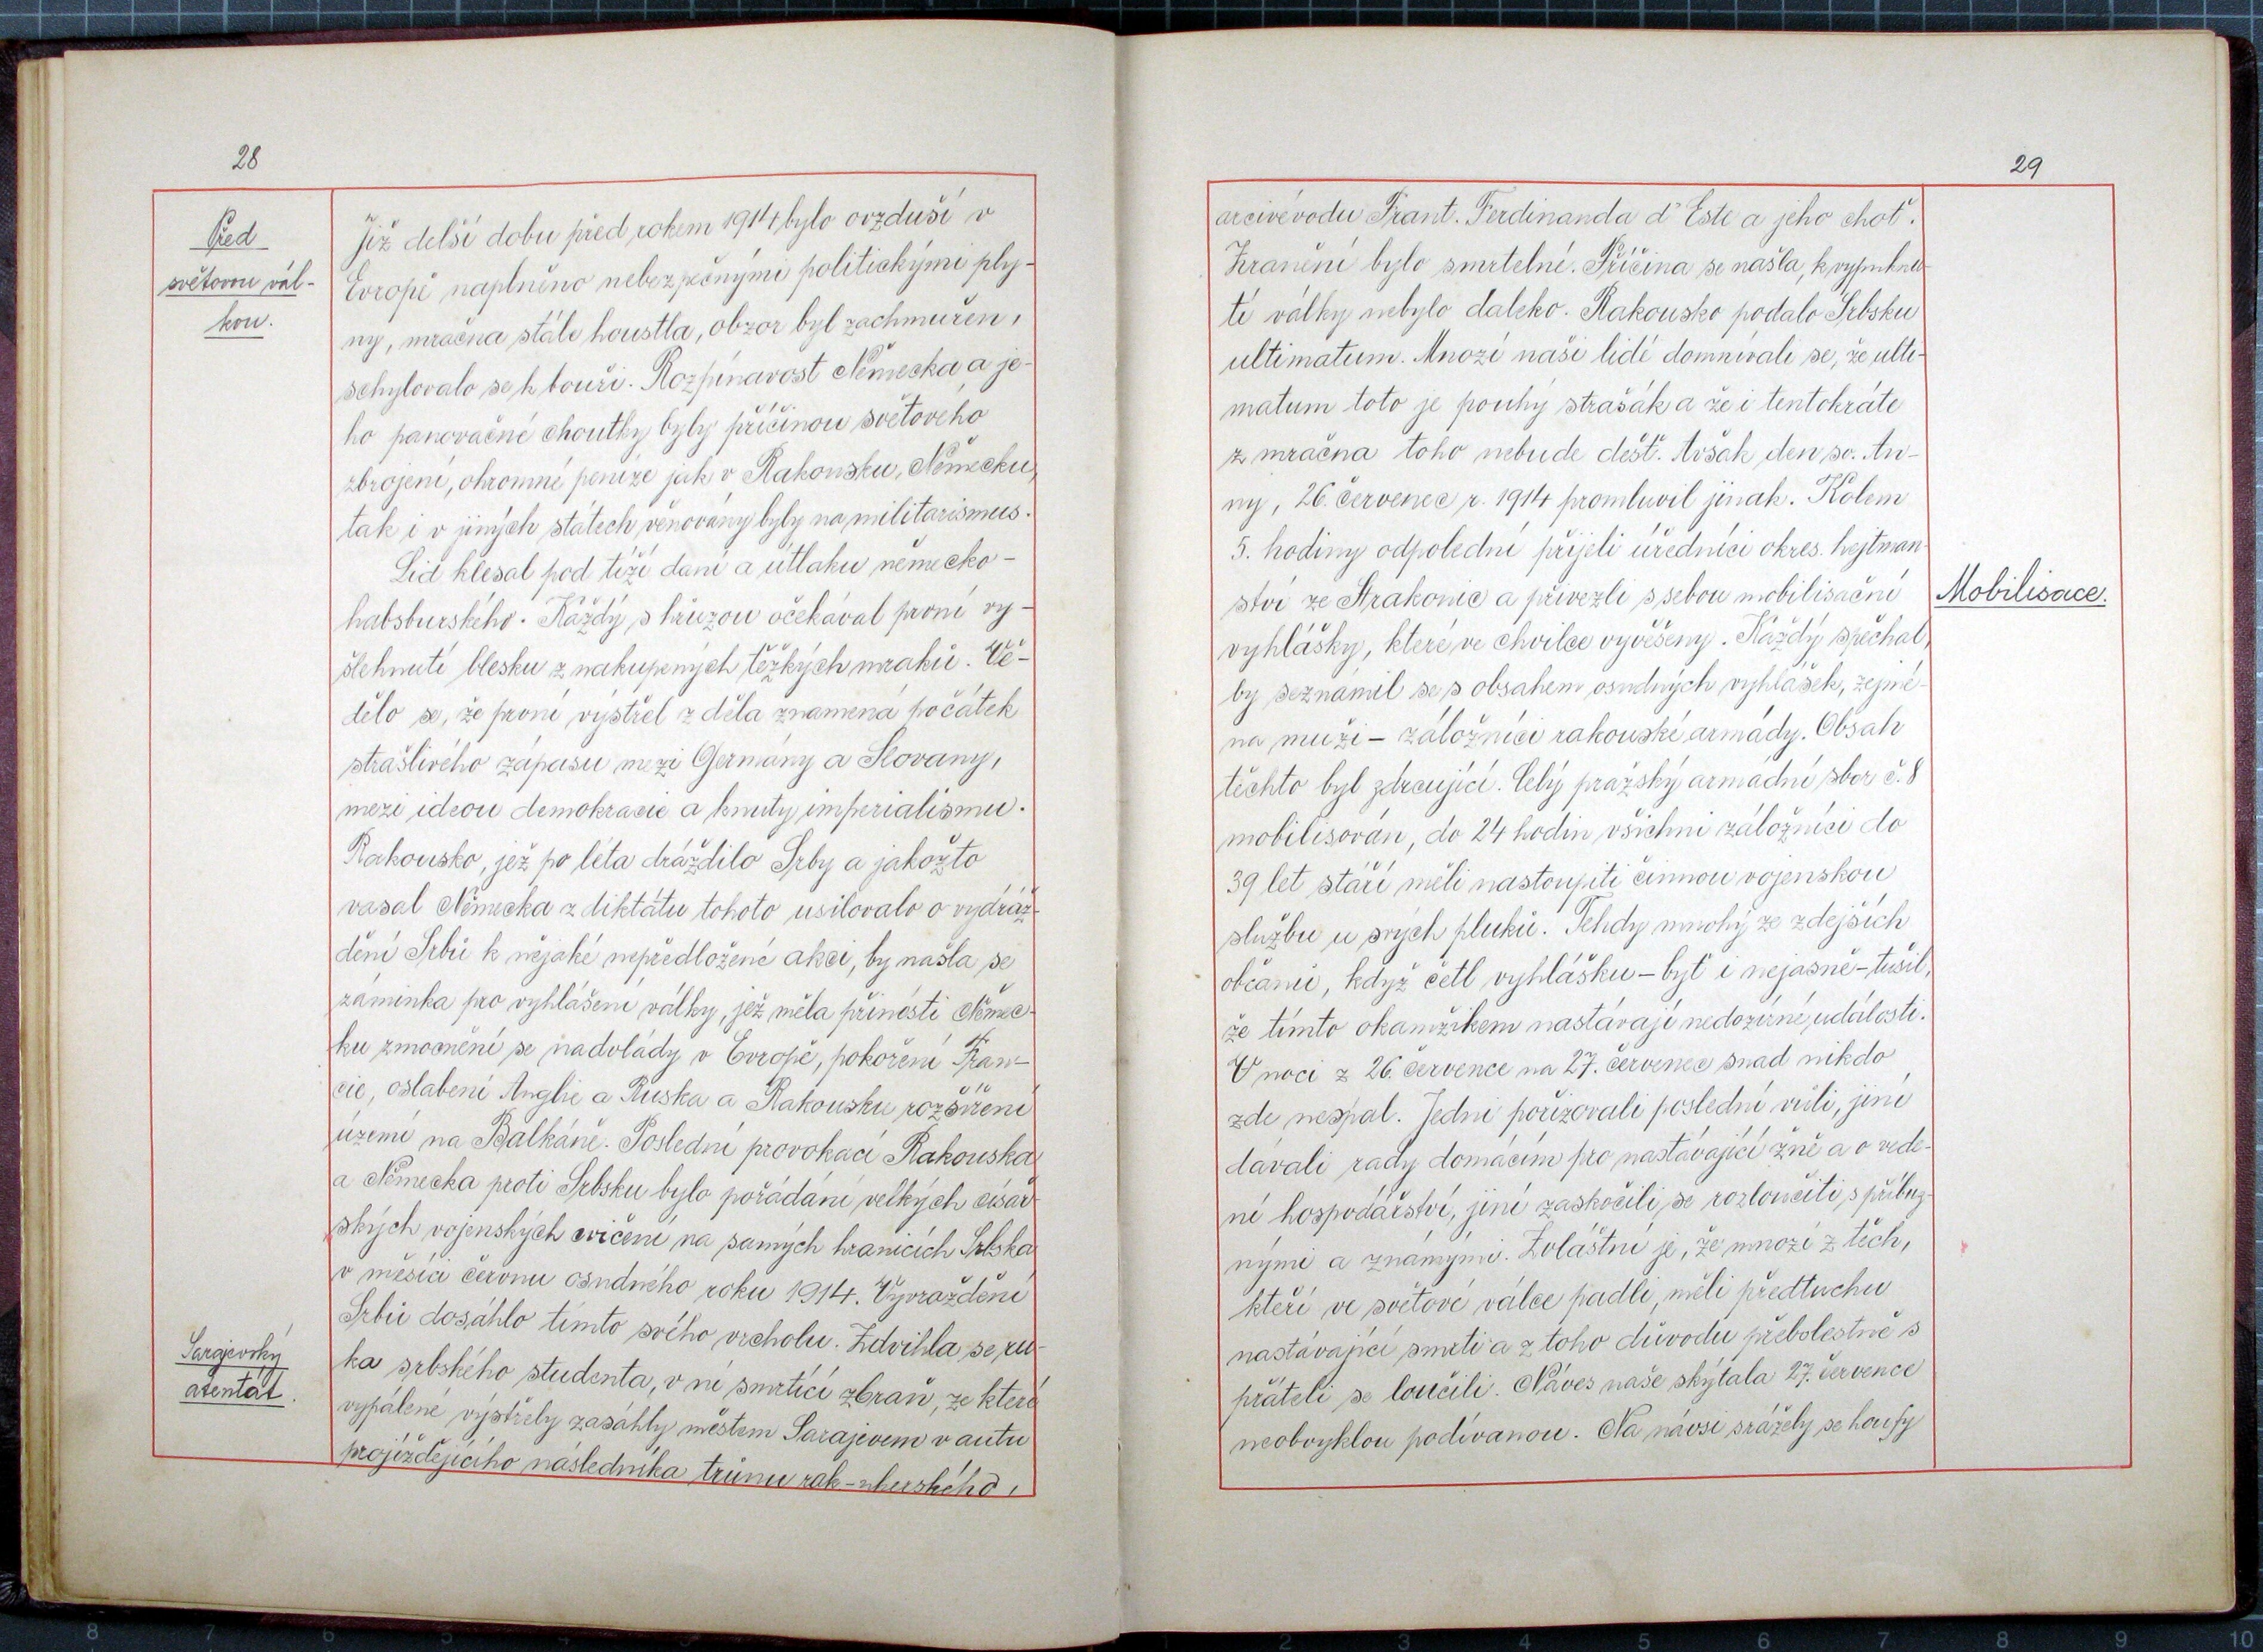 28
Před
světovou vál-
kou.
Již delší dobu před rokem 1914 bylo ovzduší v
Evropě naplněno nebezpečnými politickými ply-
ny, mračna stále houstla, obzor byl zachmuřen,
schylovalo se k bouři. Rozpínavost Německa a je-
ho panovačné choutky byly příčinou světového
zbrojení, ohromné peníze jak v Rakousku, Německu,
tak i v jiných státech věnovány byly na militarismus.
Lid klesal pod tíží daní a útlaku německo-
habsburského. Každý s hrůzou očekával první vy-
šlehnutí blesku z nakupených těžkých mraků. Vě-
dělo se, že první výstřel z děla znamená počátek
strašlivého zápasu mezi Germány a Slovany,
mezi ideou demokracie a knuty imperialismu.
Rakousko, jež po léta dráždilo Srby a jakožto
vasal Německa z diktátu tohoto usilovalo o vydráž-
dění Srbů k nějaké nepředložené akci, by našla se
záminka pro vyhlášení války, jež měla přinésti Němec-
ku zmocnění se nadvlády v Evropě, pokoření Fran-
cie, oslabení Anglie a Ruska a Rakousku rozšíření
území na Balkáně. Poslední provokací Rakouska
a Německa proti Srbsku bylo pořádání velkých císař-
ských vojenských cvičení na samých hranicích Srbska
v měsíci červnu osudného roku 1914. Vyvraždění
Srbů dosáhlo tímto svého vrcholu. Zdvihla se ru-
Sarajevský
atentát.
ka srbského studenta, v ní smrtící zbraň, ze které
vypálené výstřely zasáhly městem Sarajevem v autu
projíždějícího následníka trůnu rak-uherského,
29
arcivévodu Frant. Ferdinanda d' Este a jeho choť.
Zranění bylo smrtelné. Příčina se našla, k vypuknu-
tí války nebylo daleko. Rakousko podalo Srbsku
ultimatum. Mnozí naši lidé domnívali se, že ulti-
matum toto je pouhý strašák a že i tentokráte
z mračna toho nebude déšť. Avšak den sv. An-
ny, 26. červenec r. 1914 promluvil jinak. Kolem
5. hodiny odpolední přijeli úředníci okres. hejtman-
ství ze Strakonic a přivezli s sebou mobilisační
Mobilisace.
vyhlášky, které ve chvilce vyvěšeny. Každý spěchal,
by seznámil se s obsahem osudných vyhlášek, zejmé-
na muži - záložníci rakouské armády. Obsah
těchto byl zdrcující. Celý pražský armádní sbor č. 8
mobilisován, do 24 hodin všichni záložníci do
39 let stáří měli nastoupiti činnou vojenskou
službu u svých pluků. Tehdy mnohý ze zdejších
občanů, když četl vyhlášku - byť i nejasně - tušil,
že tímto okamžikem nastávají nedozírné události.
V noci z 26. července na 27. červenec snad nikdo
zde nespal. Jedni pořizovali poslední vůli, jiní
dávali rady domácím pro nastávající žně a o vede-
ní hospodářství, jiní zaskočili se rozloučiti s příbuz-
nými a známými. Zvláštní je, že mnozí z těch,
kteří ve světové válce padli, měli předtuchu
nastávající smrti a z toho důvodu přebolestně s
přáteli se loučili. Náves naše skýtala 27. července
neobvyklou podívanou. Na návsi srážely se houfy